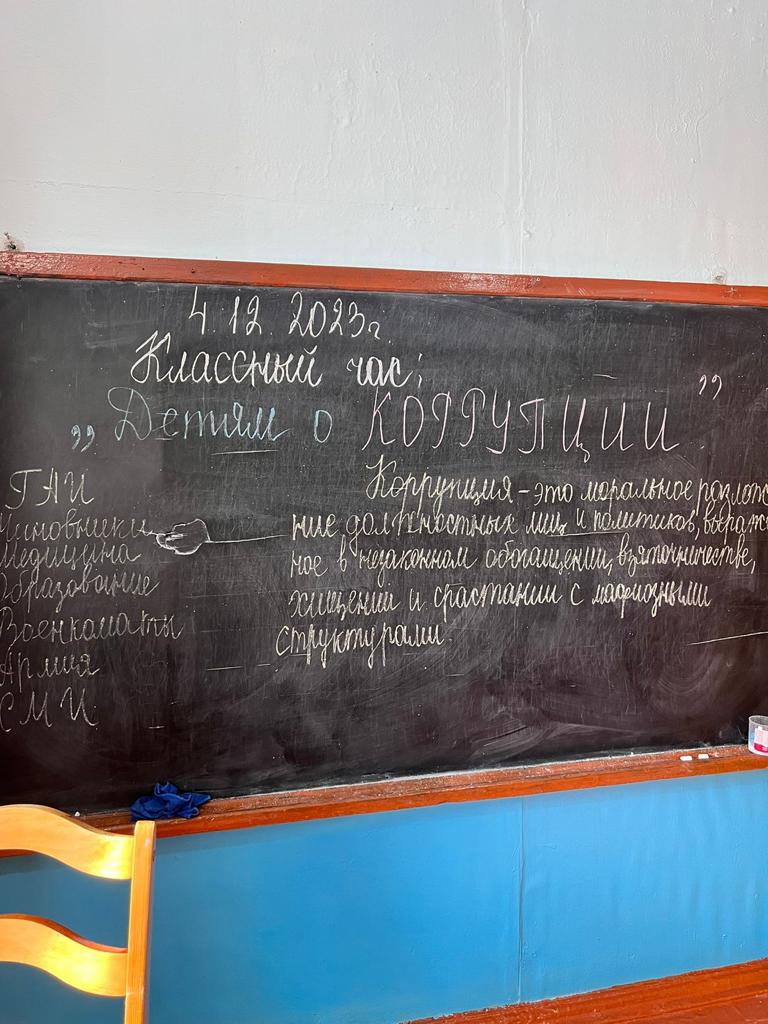 4.12.2023г.
Классный час:
„Детям о КОРРУПЦИИ”
ГАИ
Чиновники
Медицина
Образование
Военкоматы
Армия
СМИ
Коррупция - это моральное разложе
ние должностных лиц и политиков, выражен
ное в незаконном обогащении, взяточничестве,
хищении и срастании с мафиозными
структурами.